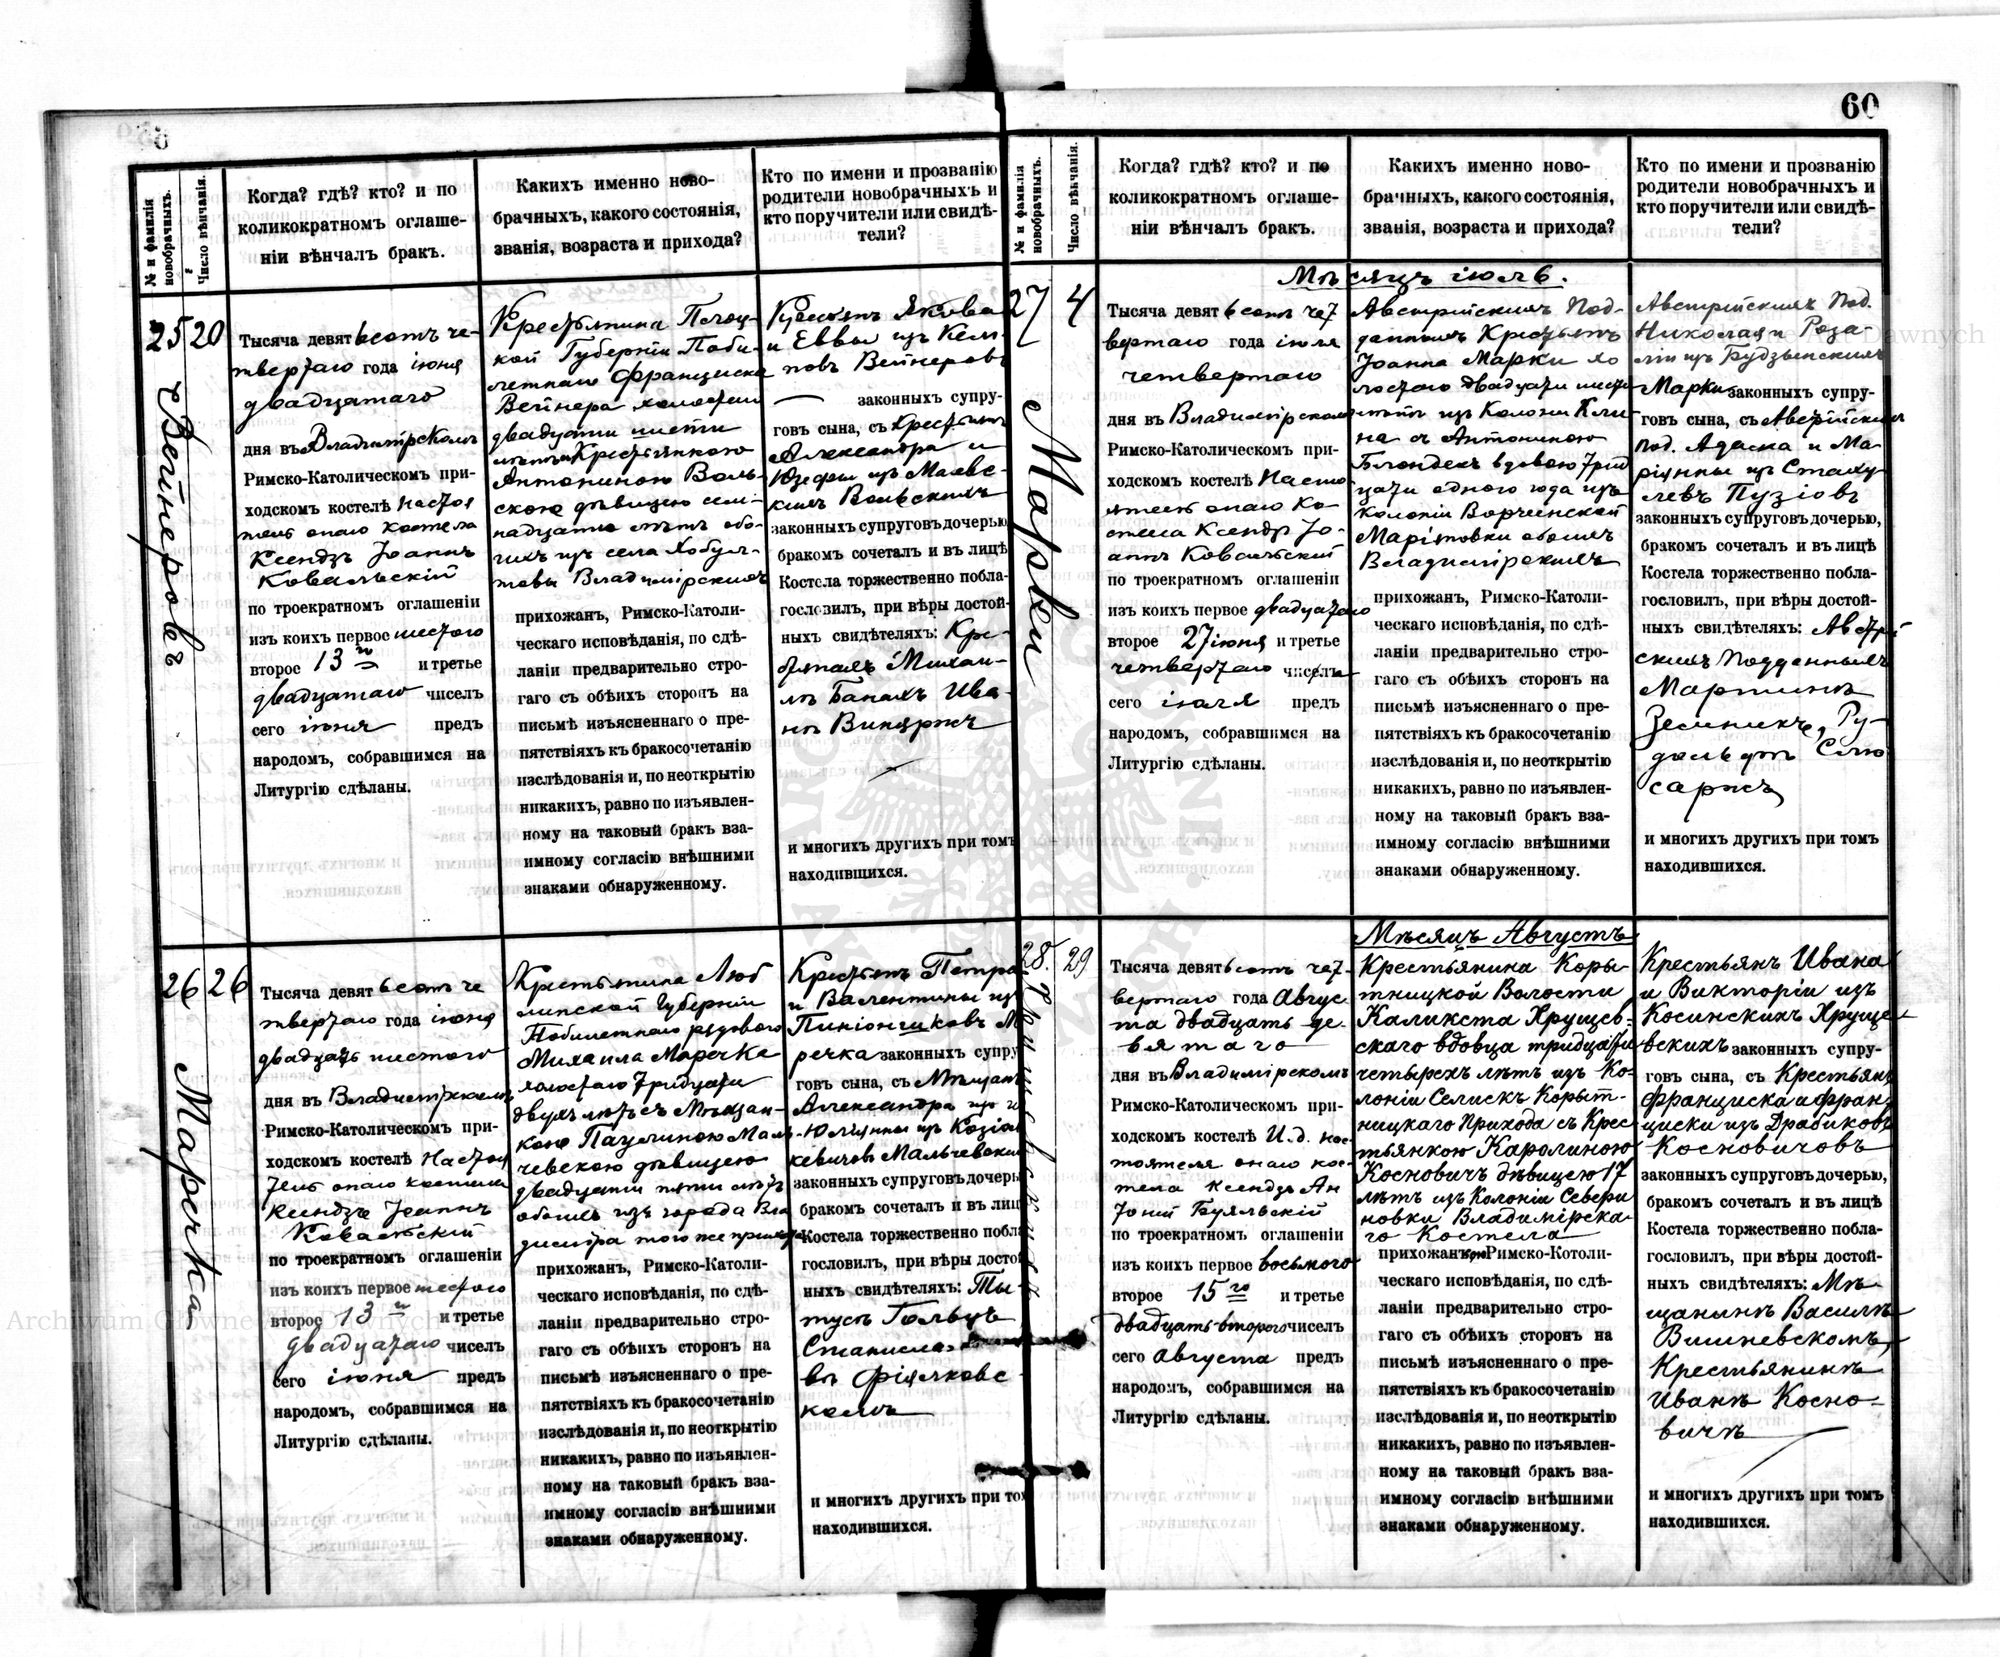 60
№ и фамилія новобрачныхъ.
Число вѣнчанія.
Когда? гдѣ? кто? и по
коликократномъ оглаше-
ніи вѣнчалъ бракъ.
Какихъ именно ново-
брачныхъ, какого состоянія,
званія, возраста и прихода?
Кто по имени и прозванію
родители новобрачныхъ и
кто поручители или свидѣ-
тели?
25
20
Вейнеровъ
Тысяча девятьсотъ че-
твертаго года іюня
двадцатаго
дня въ Владимірскомъ
Римско-Католическомъ при-
ходскомъ костелѣ Настоя
тель онаго костела
Ксендзъ Іоаннъ
Ковальскій
по троекратномъ оглашеніи
изъ коихъ первое шестого
второе 13го и третье
двадцатаго чиселъ
сего іюня предъ
народомъ, собравшимся на
Литургію сдѣланы.
Крестьянина Плоц-
кой Губерніи
Франциска
Вейнера холостого
двадцати шести
лѣтъ съ Крестьянкою
Антониною Воль-
скою дѣвицею семи-
надцати лѣтъ обо-
ихъ изъ села Хобул-
товы Владимірскихъ
прихожанъ, Римско-Католи-
ческаго исповѣданія, по сдѣ-
ланіи предварительно стро-
гаго съ обѣихъ сторонъ на
письмѣ изъясненнаго о пре-
пятствіяхъ къ бракосочетанію
изслѣдованія и, по неоткрытію
никакихъ, равно по изъявлен-
ному на таковый бракъ вза-
имному согласію внѣшними
знаками обнаруженному.
Крестьянъ Якова
и Еввы изъ
Вейнеровъ
законныхъ супру-
говъ сына, съ Крестьянъ
Александра и
Юзефы изъ
Вольскихъ
законныхъ супруговъ дочерью,
бракомъ сочеталъ и въ лицѣ
Костела торжественно побла-
гословилъ, при вѣры достой-
ныхъ свидѣтеляхъ: Кре-
стьянахъ Михаи-
лѣ Банахъ Ива-
нѣ Виняржъ
и многихъ другихъ при томъ
находившихся.
26
26
Маречка
Тысяча девятьсотъ че
твертаго года іюня
двадцать шестого
дня въ Владимірскомъ
Римско-Католическомъ при-
ходскомъ костелѣ Настоя
тель онаго костела
Ксендзъ Іоаннъ
Ковальскій
по троекратномъ оглашеніи
изъ коихъ первое шестого
второе 13го и третье
двадцатаго чиселъ
сего іюня предъ
народомъ, собравшимся на
Литургію сдѣланы.
Крестьянина Люб
линской Губерніи
рядового
Михаила Маречка
холостаго тридцати
двухъ лѣтъ съ Мѣщан-
кою Паулиною Маль-
чевскою дѣвицею
двадцати пяти лѣтъ
обоихъ изъ города Вла
димира того же прихода
прихожанъ, Римско-Католи-
ческаго исповѣданія, по сдѣ-
ланіи предварительно стро-
гаго съ обѣихъ сторонъ на
письмѣ изъясненнаго о пре-
пятствіяхъ къ бракосочетанію
изслѣдованія и, по неоткрытію
никакихъ, равно по изъявлен-
ному на таковый бракъ вза-
имному согласію внѣшними
знаками обнаруженному.
Крестьянъ Петра
и Валентины изъ
Пиніончиковъ Ма
речка законныхъ супру
говъ сына, съ Мѣщанъ
Александра и
Юліанны изъ Козіо
кевичовъ Мальчевскихъ
законныхъ супруговъ дочерь
бракомъ сочеталъ и въ лиц
Костела торжественно побла
гословилъ, при вѣры досто
ныхъ свидѣтеляхъ: Ты-
тусѣ Гольцъ
Станисла-
вѣ Фіялковс-
комъ
и многихъ другихъ при том
находившихся.
№ и фамилія новобрачныхъ.
Число вѣнчанія.
Когда? гдѣ? кто? и по
коликократномъ оглаше-
ніи вѣнчалъ бракъ.
Какихъ именно ново-
брачныхъ, какого состоянія,
званія, возраста и прихода?
Кто по имени и прозванію
родители новобрачныхъ и
кто поручители или свидѣ-
тели?
Мѣсяцъ іюль.
27
4
Марки
Тысяча девятьсотъ чет
вертаго года іюля
четвертаго
дня въ Владимірскомъ
Римско-Католическомъ при-
ходскомъ костелѣ Насто
ятель онаго Ко
стела Ксендзъ Іо-
аннъ Ковальскій
по троекратномъ оглашеніи
изъ коихъ первое двадцатаго
второе 27 іюня и третье
четвертаго чиселъ
сего іюля предъ
народомъ, собравшимся на
Литургію сдѣланы.
Австрійскихъ Под-
данныхъ Крестьянъ
Іоанна Марки хо
лостаго двадцати шести
лѣтъ изъ Колоніи Кли-
на съ Антониною
Блондекъ вдовою трид
цати одного года изъ
колоніи Ворчинской
Маріановки обоихъ
Владимірскихъ
прихожанъ, Римско-Католи-
ческаго исповѣданія, по сдѣ-
ланіи предварительно стро-
гаго съ обѣихъ сторонъ на
письмѣ изъясненнаго о пре-
пятствіяхъ къ бракосочетанію
изслѣдованія и, по неоткрытію
никакихъ, равно по изъявлен-
ному на таковый бракъ вза-
имному согласію внѣшними
знаками обнаруженному.
Австрійскихъ Под.
Николая и Роза-
ліи изъ Будзынскихъ
Марки законныхъ супру-
говъ сына, съ Австрійскихъ
под. Адама и Ма-
ріянны изъ Стаху
левъ Пузіовъ
законныхъ супруговъ дочерью,
бракомъ сочеталъ и въ лицѣ
Костела торжественно побла-
гословилъ, при вѣры достой-
ныхъ свидѣтеляхъ: Австрі
скихъ подданныхъ
Мартинѣ
Земникъ, Ру-
дольфѣ Слю
саржъ
и многихъ другихъ при томъ
находившихся.
Мѣсяцъ Августъ
28.
29
Хрищевскихъ
Тысяча девятьсотъ чет-
вертаго года Авгус
та двадцать де-
вятаго
дня въ Владимірскомъ
Римско-Католическомъ при-
ходскомъ костелѣ И.д. нас
тоятеля онаго кос-
тела ксендзъ Ан
тоній Буяльскій
по троекратномъ оглашеніи
изъ коихъ первое восьмого
второе 15го и третье
двадцать второго чиселъ
сего августа предъ
народомъ, собравшимся на
Литургію сдѣланы.
Крестьянина Коры-
тницкой Волости
Каликста Хрущев-
скаго вдовца тридцати
четырехъ лѣтъ изъ Ко-
лоніи Селискъ Корыт-
ницкаго Прихода съ Крес
тьянкою Каролиною
Косновичъ дѣвицею 17
лѣтъ изъ Колоніи Севери
новки Владимірска-
го Костела
прихожанкою Римско-Котоли-
ческаго исповѣданія, по сдѣ-
ланіи предварительно стро-
гаго съ обѣихъ сторонъ на
письмѣ изъясненнаго о пре-
пятствіяхъ къ бракосочетанію
изслѣдованія и, по неоткрытію
никакихъ, равно по изъявлен-
ному на таковый бракъ вза-
имному согласію внѣшними
знаками обнаруженному.
Крестьянъ Ивана
и Викторіи изъ
Косинскихъ Хруще-
вскихъ законныхъ супру-
говъ сына, съ Крестьянъ
Франциска и Фран
циски изъ Драбиковъ
Косновичовъ
законныхъ супруговъ дочерью,
бракомъ сочеталъ и въ лицѣ
Костела торжественно побла-
гословилъ, при вѣры достой-
ныхъ свидѣтеляхъ: Мѣ-
щанинѣ Василѣ
Вишневскомъ,
Крестьянинѣ
Иванѣ Косно-
вичъ
и многихъ другихъ при томъ
находившихся.
Archiwum Główne Akt Dawnych